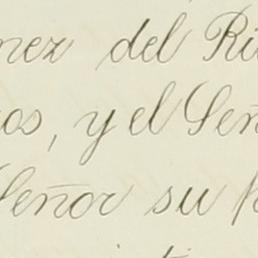 nez del Ri
os, y el Señ
Señor su h